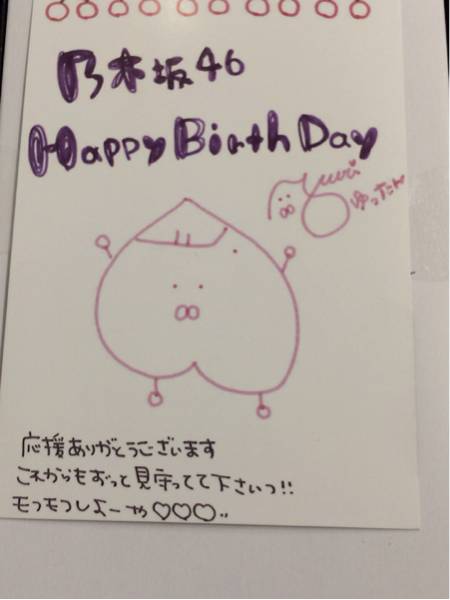 乃木坂46
Happy Birth Day
Yuuri
ゆったん
応援ありがとうございます
これからもずっと見守ってて下さいっ!!
モフモフしよーや♡♡♡..